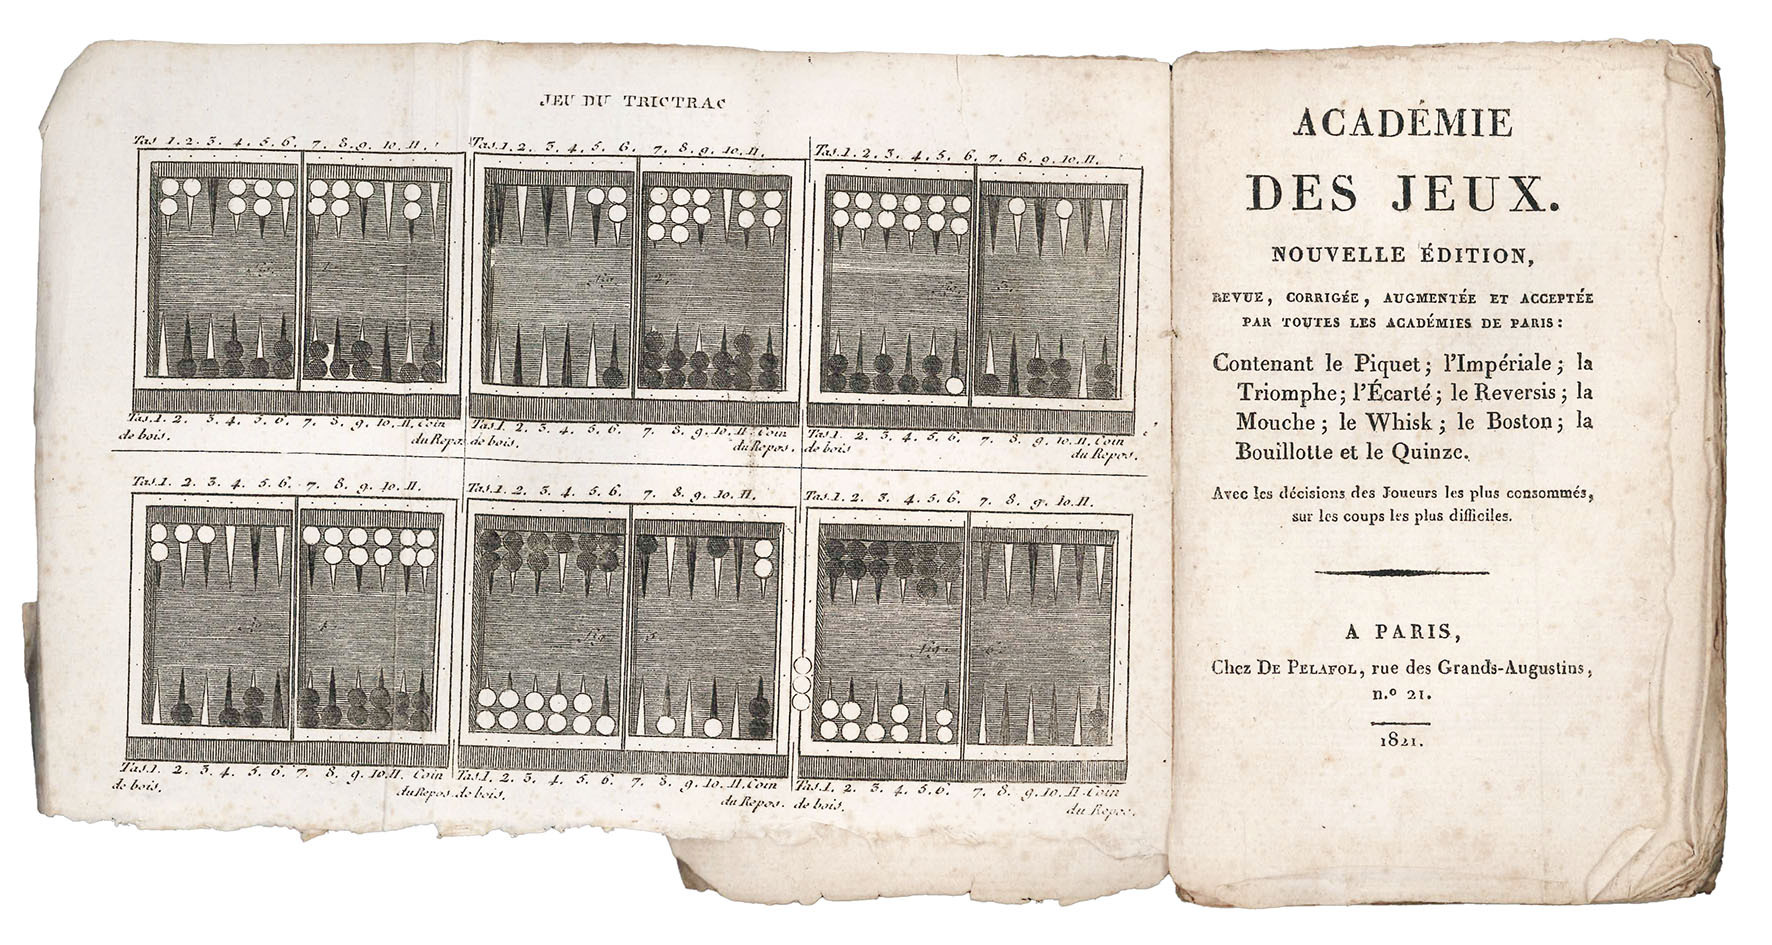 JEU DU TRICTRAC
Tas 1. 2. 3. 4. 5. 6. 7. 8. 9. 10. 11.
Tas 1. 2. 3. 4. 5. 6. 7. 8. 9. 10. 11.
Tas 1. 2. 3. 4. 5. 6. 7. 8. 9. 10. 11.
Fig. 1.
Fig. 2.
Fig. 3.
Tas 1. 2. 3. 4. 5. 6. 7. 8. 9. 10. 11. Coin
de bois. du Repos
Tas 1. 2. 3. 4. 5. 6. 7. 8. 9. 10. 11. Coin
de bois. du Repos.
Tas 1. 2. 3. 4. 5. 6. 7. 8. 9. 10. 11. Coin
de bois du Repos.
Tas 1. 2. 3. 4. 5. 6. 7. 8. 9. 10. 11.
Tas 1. 2. 3. 4. 5. 6. 7. 8. 9. 10. 11.
Tas 1. 2. 3. 4. 5. 6. 7. 8. 9. 10. 11.
Fig. 4.
Fig. 5.
Fig. 6.
Tas 1. 2. 3. 4. 5. 6. 7. 8. 9. 10. 11. Coin
de bois. du Repos
Tas 1. 2. 3. 4. 5. 6. 7. 8. 9. 10. 11. Coin
de bois. du Repos.
Tas 1. 2. 3. 4. 5. 6. 7. 8. 9. 10. 11. Coin
de bois. du Repos.
ACADÉMIE
DES JEUX.
NOUVELLE ÉDITION,
REVUE, CORRIGÉE, AUGMENTÉE ET ACCEPTÉE
PAR TOUTES LES ACADÉMIES DE PARIS:
Contenant le Piquet; l'Impériale; la
Triomphe; l'Écarté; le Reversis; la
Mouche; le Whisk; le Boston; la
Bouillotte et le Quinze.
Avec les décisions des Joueurs les plus consommés,
sur les coups les plus difficiles.
A PARIS,
Chez DE PELAFOL, rue des Grands-Augustins,
n.º 21.
1821.